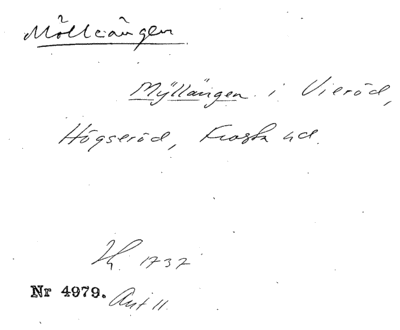 Mölleängen
Myllängen i Vieröd,
Högseröd, Frosta hd.
Hg. 1737
Nr 4979. Ant 11